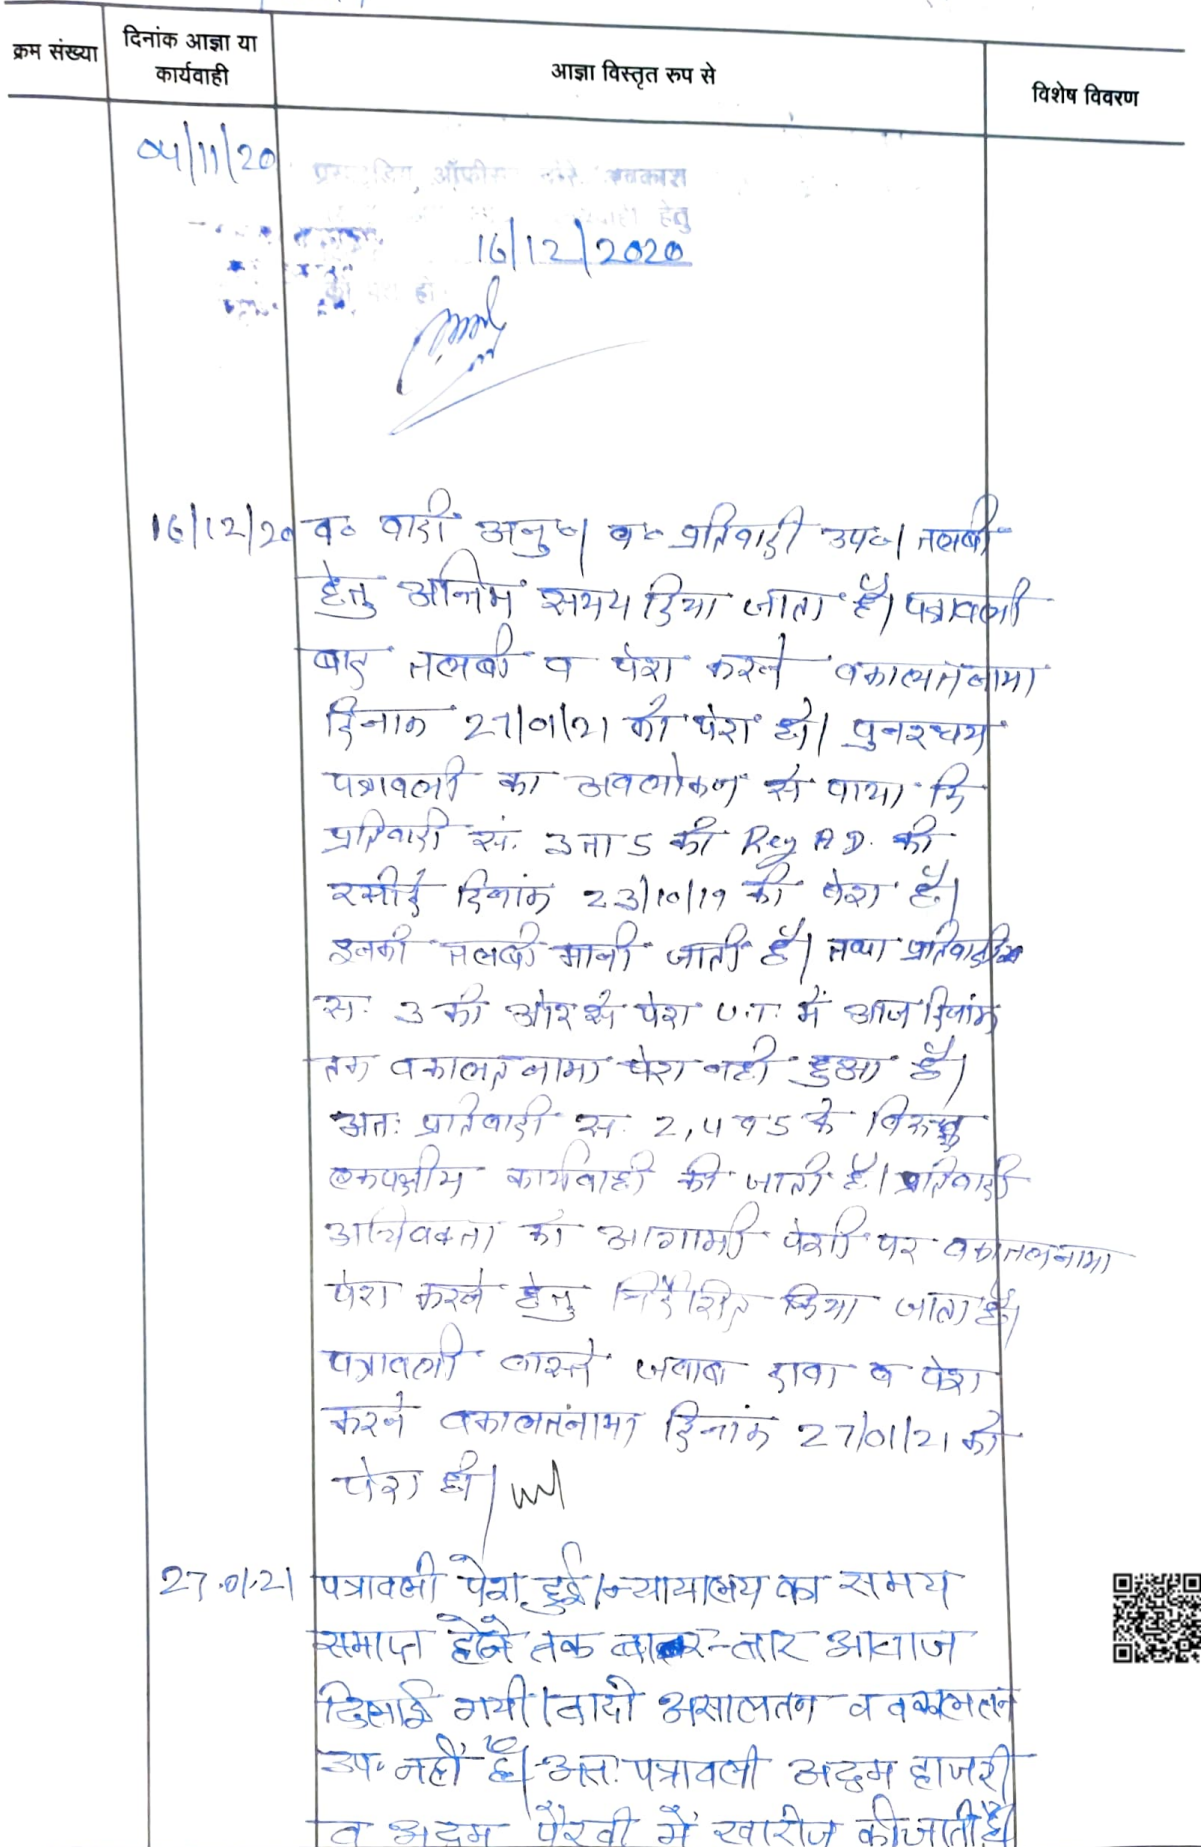 क्रम संख्या
दिनांक आज्ञा या
कार्यवाही
आज्ञा विस्तृत रुप से
विशेष विवरण
04/11/20
ऑफीसर अवकाश
हेतु
16/12/2020
16/12/20 व० वादी अनु०। व० प्रतिवादी उप०। तलबी
हेतु अन्तिम समय दिया जाता है। पत्रावली
बाद तलबी व पेश करने वकालतनामा
दिनांक 27/01/21 को पेश हो। पुनश्चय
पत्रावली का अवलोकन से पाया कि
प्रतिवादी सं. 3 ता 5 की Reg A D. की
रसीदें दिनांक 23/10/19 को पेश है।
इनकी तलबी मानी जाती है। तथा प्रतिवादी
स. 3 की ओर से पेश U.T. में आज दिनांक
तक वकालतनामा पेश नही हुआ है।
अतः प्रतिवादी स. 2,4 व 5 के विरुद्ध
एकपक्षीय कार्यवाही की जाती है। प्रतिवादी
अधिवक्ता को आगामी पेशी पर वकालतनामा
पेश करने हेतु निर्देशित किया जाता है।
पत्रावली वास्ते जवाब दावा व पेश
करने वकालतनामा दिनांक 27/01/21 को
पेश हो।
27.01.21 पत्रावली पेश हुई। न्यायालय का समय
समाप्त होने तक बार-बार आवाज
दिलाई गयी। वादी असालतन व वकालतन
उप. नहीं है। अतः पत्रावली अदम हाजरी
व अदम पैरवी में खारीज की जाती है